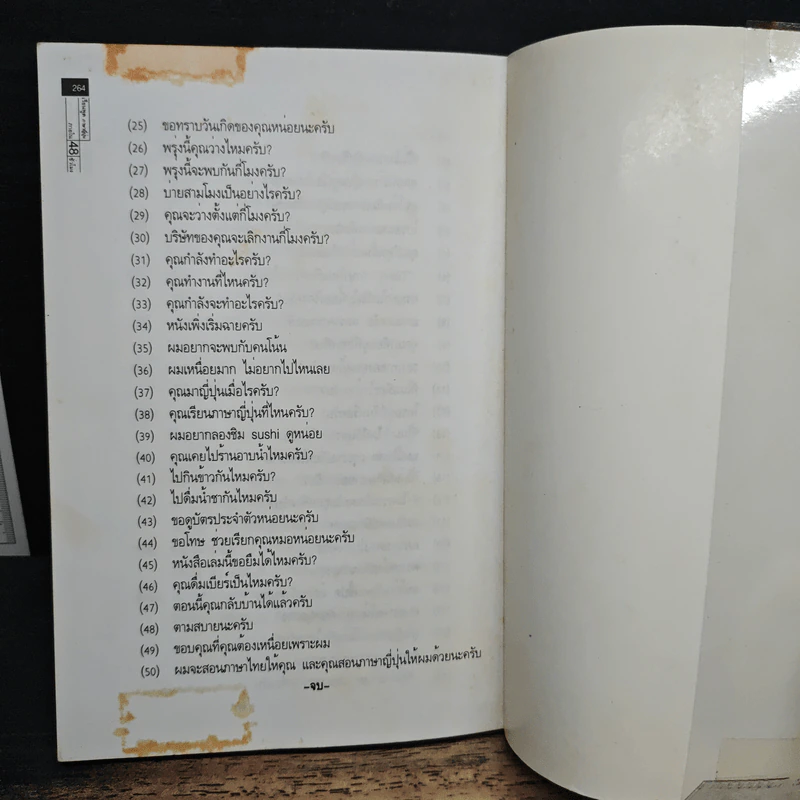 264
เรียนพูด ภาษาญี่ปุ่น
ภายใน 48 ชั่วโมง
(25) ขอทราบวันเกิดของคุณหน่อยนะครับ
(26) พรุ่งนี้คุณว่างไหมครับ?
(27) พรุ่งนี้จะพบกันกี่โมงครับ?
(28) บ่ายสามโมงเป็นอย่างไรครับ?
(29) คุณจะว่างตั้งแต่กี่โมงครับ?
(30) บริษัทของคุณจะเลิกงานกี่โมงครับ?
(31) คุณกำลังทำอะไรครับ?
(32) คุณทำงานที่ไหนครับ?
(33) คุณกำลังจะทำอะไรครับ?
(34) หนังเพิ่งเริ่มฉายครับ
(35) ผมอยากจะพบกับคนโน้น
(36) ผมเหนื่อยมาก ไม่อยากไปไหนเลย
(37) คุณมาญี่ปุ่นเมื่อไรครับ?
(38) คุณเรียนภาษาญี่ปุ่นที่ไหนครับ?
(39) ผมอยากลองชิม sushi ดูหน่อย
(40) คุณเคยไปร้านอาบน้ำไหมครับ?
(41) ไปกินข้าวกันไหมครับ?
(42) ไปดื่มน้ำชากันไหมครับ
(43) ขอดูบัตรประจำตัวหน่อยนะครับ
(44) ขอโทษ ช่วยเรียกคุณหมอหน่อยนะครับ
(45) หนังสือเล่มนี้ขอยืมได้ไหมครับ?
(46) คุณดื่มเบียร์เป็นไหมครับ?
(47) ตอนนี้คุณกลับบ้านได้แล้วครับ
(48) ตามสบายนะครับ
(49) ขอบคุณที่คุณต้องเหนื่อยเพราะผม
(50) ผมจะสอนภาษาไทยให้คุณ และคุณสอนภาษาญี่ปุ่นให้ผมด้วยนะครับ
-จบ-